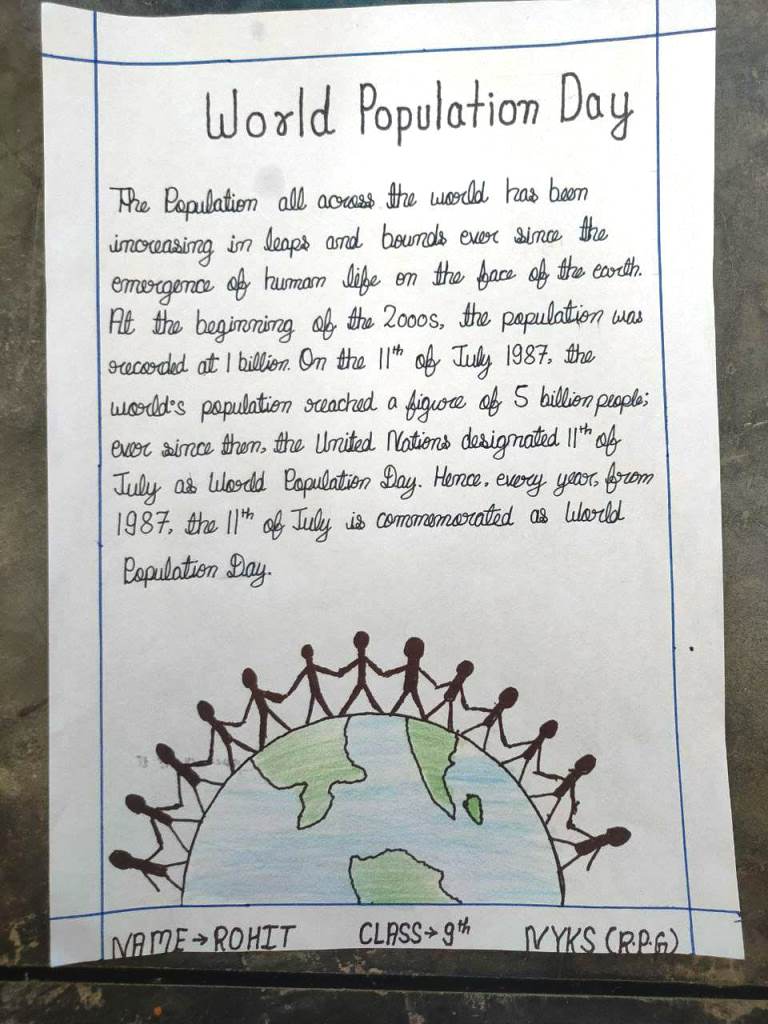 World Population Day
The Population all across the world has been
increasing in leaps and bounds ever since the
emergence of human life on the face of the earth.
At the beginning of the 2000s, the population was
recorded at 1 billion. On the 11th of July 1987, the
world's population reached a figure of 5 billion people;
ever since then, the United Nations designated 11th of
July as World Population Day. Hence, every year, from
1987, the 11th of July is commemorated as World
Population Day.
NAME→ROHIT CLASS→9th NYKS (R.P.G)